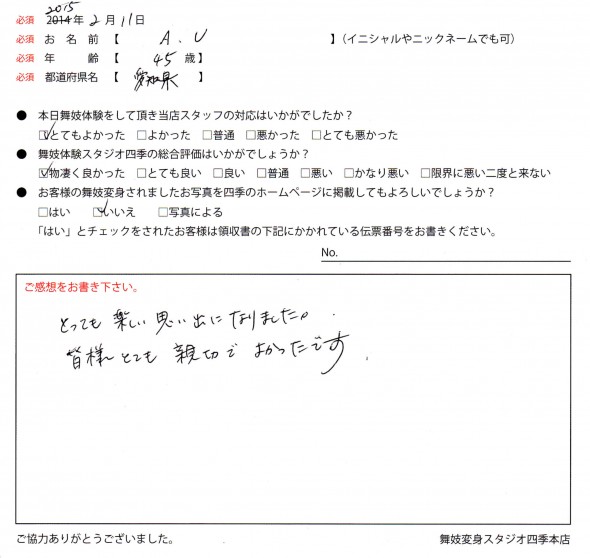 2015
必須 2014年 2月 11日
必須 お名前【 A.U 】(イニシャルやニックネームでも可)
必須 年齢【 45 歳】
必須 都道府県名【 愛知県 】
● 本日舞妓体験をして頂き当店スタッフの対応はいかがでしたか？
☑とてもよかった □よかった □普通 □悪かった □とても悪かった
● 舞妓体験スタジオ四季の総合評価はいかがでしょうか？
☑物凄く良かった □とても良い □良い □普通 □悪い □かなり悪い □限界に悪い二度と来ない
● お客様の舞妓変身されましたお写真を四季のホームページに掲載してもよろしいでしょうか？
□はい ☑いいえ □写真による
「はい」とチェックをされたお客様は領収書の下記にかかれている伝票番号をお書きください。
No.
ご感想をお書き下さい。
とっても楽しい思い出になりました。
皆様とても親切でよかったです.
ご協力ありがとうございました。
舞妓変身スタジオ四季本店